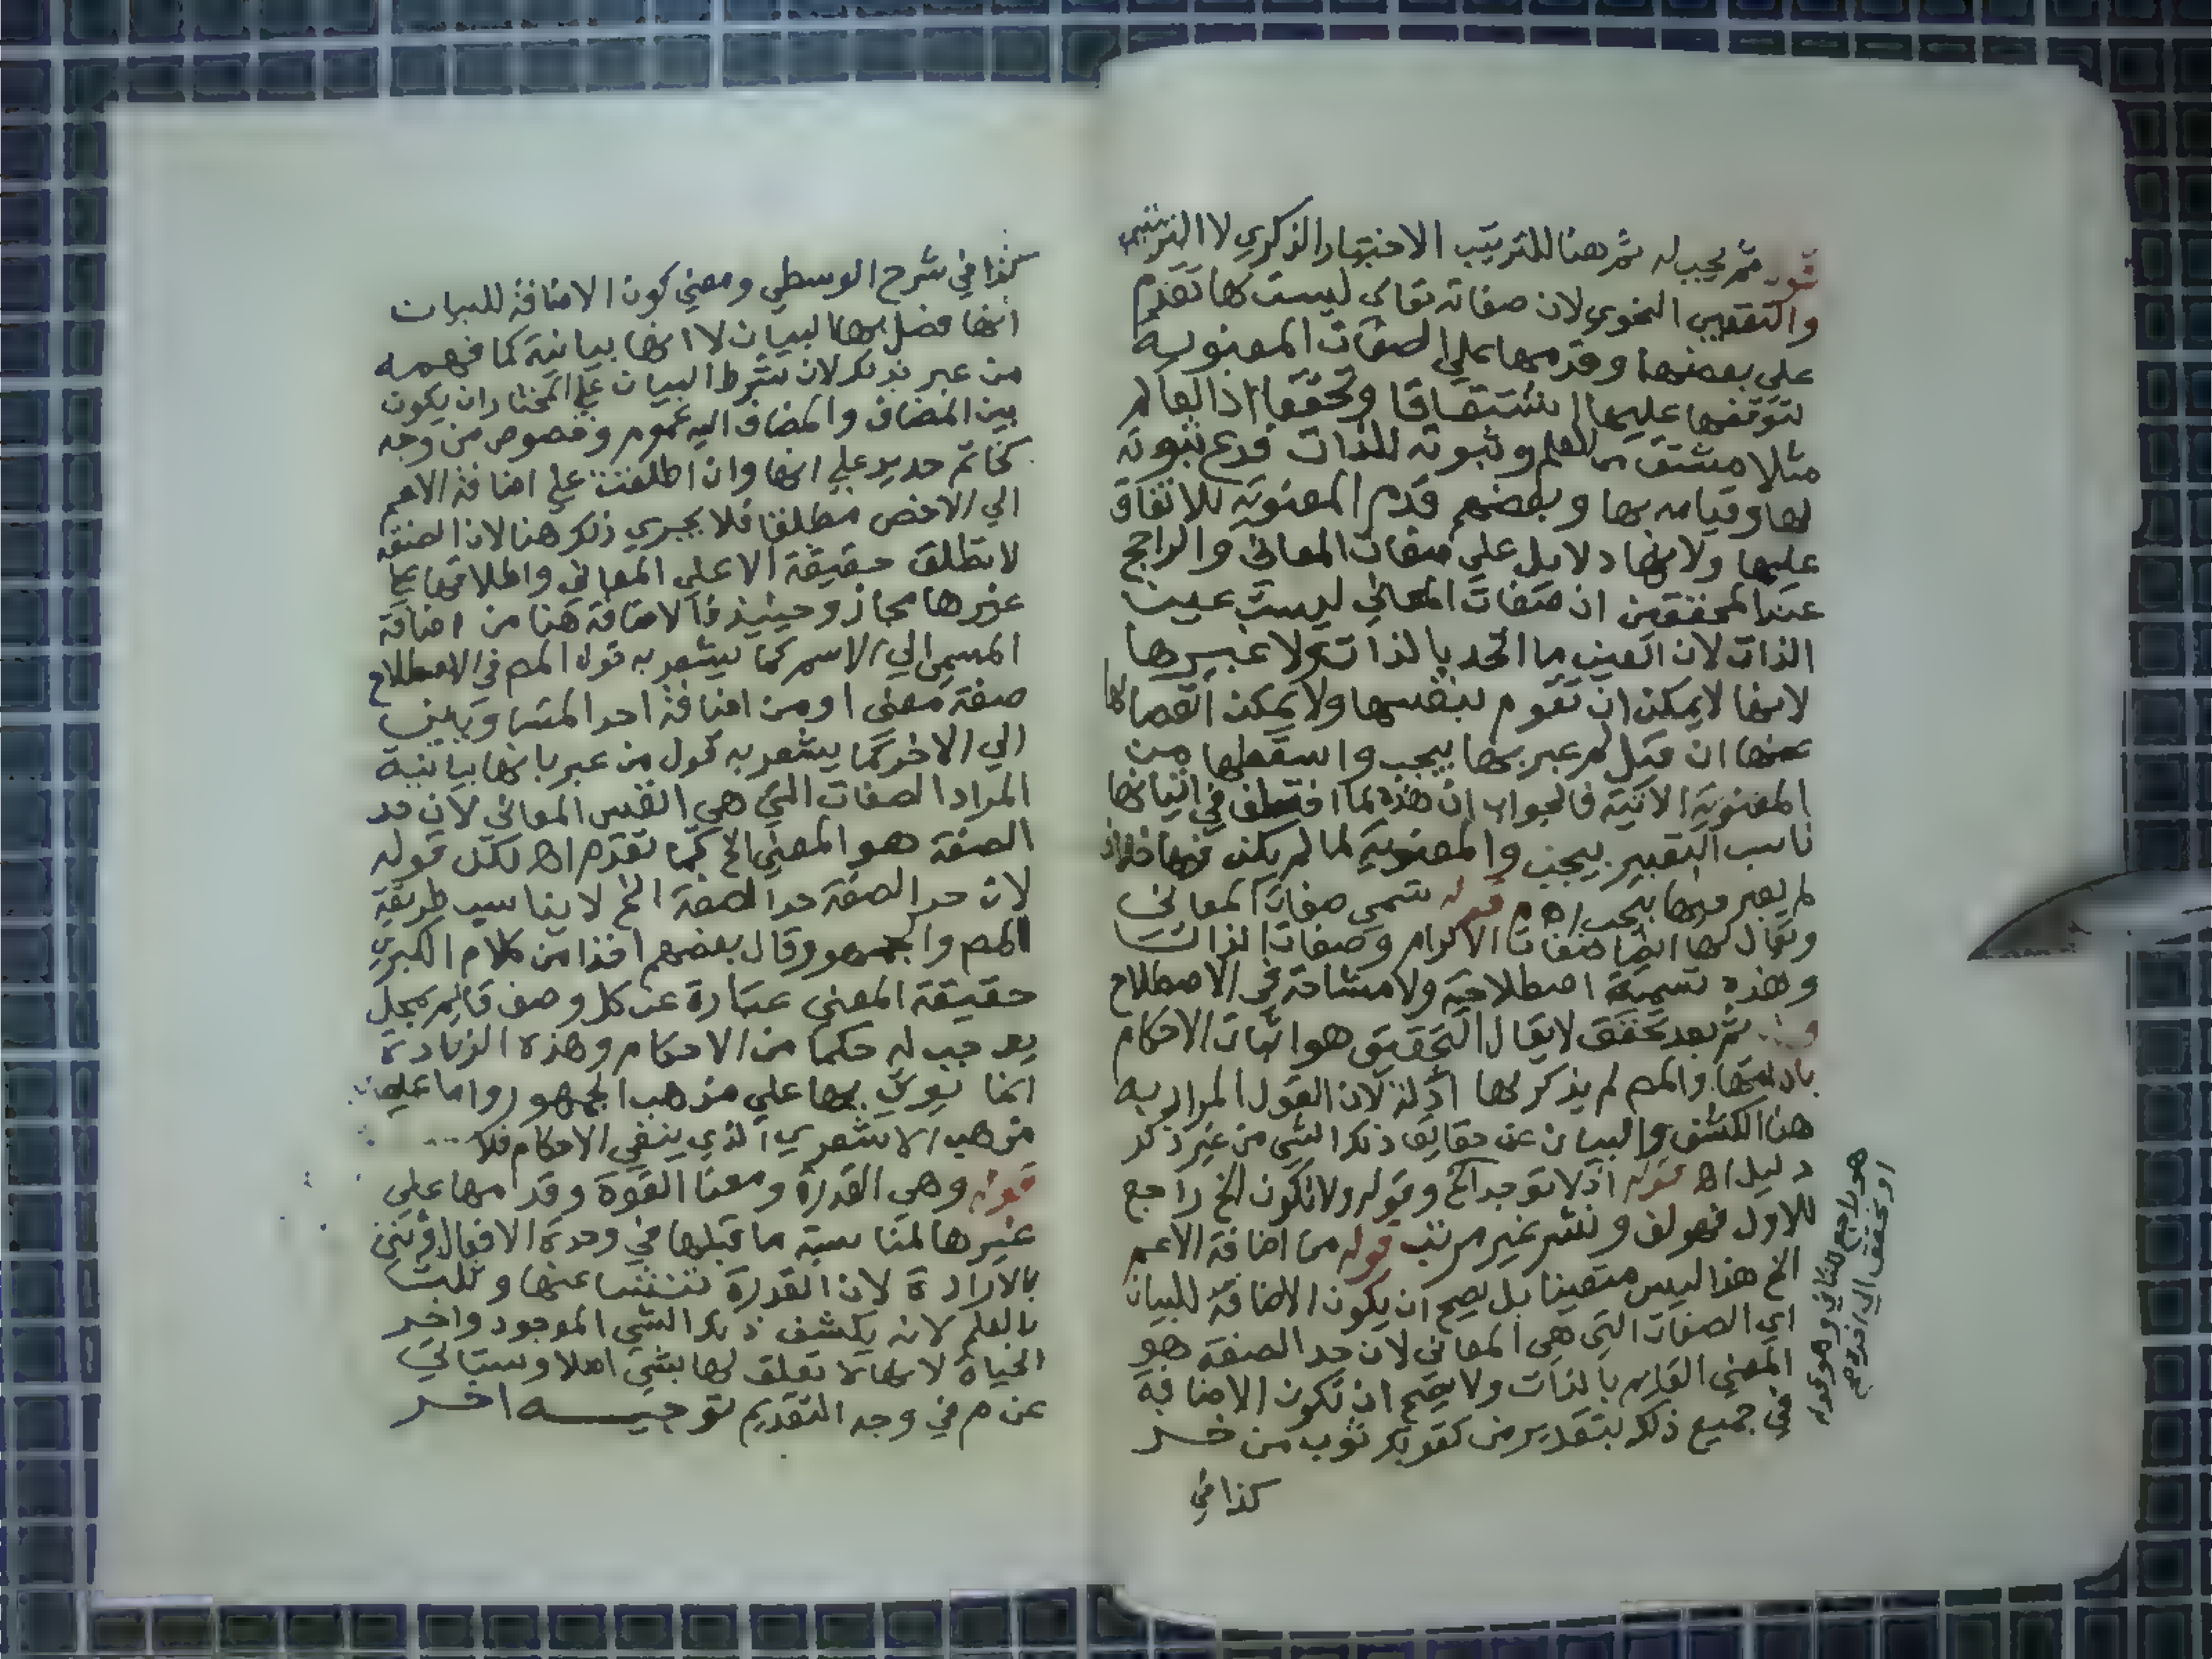 قوله ثم يجب له ثم هنا للترتيب الاخبار الذكري لا الترتيبي
والتعقيب النحوي لان صفاته تعالي ليست كها تقدم
علي بعضها وقدمها علي الصفات المعنوية
لتوقفها عليها اشتقاقا وتحققا اذ العالم
مثلا مشتق من العلم وثبوته للذات فرع ثبوته
لها وقيامه بها وبعضهم قدم المعنوية للاتفاق
عليها ولانها دلايل علي صفات المعاني والراجح
عند المحققين ان صفات المعاني ليست عين
الذات لان العين ما اتحد بالذات ولا غيرها
لانها لا يمكن ان تقوم بنفسها ولا يمكن انفصالها
عنها ان قيل لم عبر بها بيجب واسقطها من
المعنوية الاتية فالجواب ان هذه لما اختلف في اثباتها
ناسب التعبير بيجب والمعنوية لما لم يكن فيها خلاف
لم يعبر فيها بيجب اه م قوله تسمي صفات المعاني
ويقال لها ايضا صفات الاكرام وصفات الذات
وهذه تسمية اصطلاحية ولا مشاحة في الاصطلاح
ثم بعد تحقق لا يقال التحقيق هو اثبات الاحكام
بادلتها والمص لم يذكر لها ادلة لان القول المراد به
هنا الكشف والبيان عن حقايق ذكر الشي من غير ذكر
دليل اه قوله اذ لا توجد الخ وقوله ولا تكون الخ راجع
للاول فهو لف ونشر غير مرتب قوله من اضافة الاعم
الخ هذا ليس متعينا بل يصح ان يكون الاضافة للبيان
اي الصفات التي هي المعاني لان حد الصفة هو
المعني القايم بالذات ولا يصح ان تكون الاضافة
في جميع ذلك بتقدير من كقولك ثوب من خز
كذا في
هو راجع للثاني وهو قوله
كذا في شرح الوسطي ومعني كون الاضافة للبيان
انها فصل بها البيان لا انها بيانية كما فهمه
من عبر بذلك لان شرط البيان علي المختار ان يكون
بين المضاف والمضاف اليه عموم وخصوص من وجه
كخاتم حديد علي انها وان اطلقت علي اضافة الاعم
الي الاخص مطلقا فلا يجري ذلك هنا لان الصفة
لا تطلق حقيقة الا علي المعاني واطلاقها علي
غيرها مجاز وحينيذ فالاضافة هنا من اضافة
المسمي الي الاسم كما يشعر به قول المص في الاصطلاح
صفة معني او من اضافة احد المتساويين
الي الاخر كما يشعر به قول من عبر بانها بيانية
المراد الصفات التي هي نفس المعاني لان حد
الصفة هو المعني الخ كما تقدم اه لكن قوله
لان حد الصفة حد الصفة الخ لا يناسب طريقة
المص والجمهور وقال بعضهم اخذا من كلام الكبري
حقيقة المعني عبارة عن كل وصف قايم بمحل
يوجب له حكما من الاحكام وهذه الزيادة
انما يوتي بها علي مذهب الجمهور واما علي
مذهب الاشعري الذي ينفي الاحكام فلا
قوله وهي القدرة ومعنا القوة وقدمها علي
غيرها لمناسبة ما قبلها في وحدة الافعال وثني
بالارادة لان القدرة تنشا عنها وثلث
بالعلم لانه يكشف ذلك الشي الموجود واخر
الحياة لانها لا تعلق لها بشي اصلا وسياتي
عن م في وجه التقديم توجيه اخر